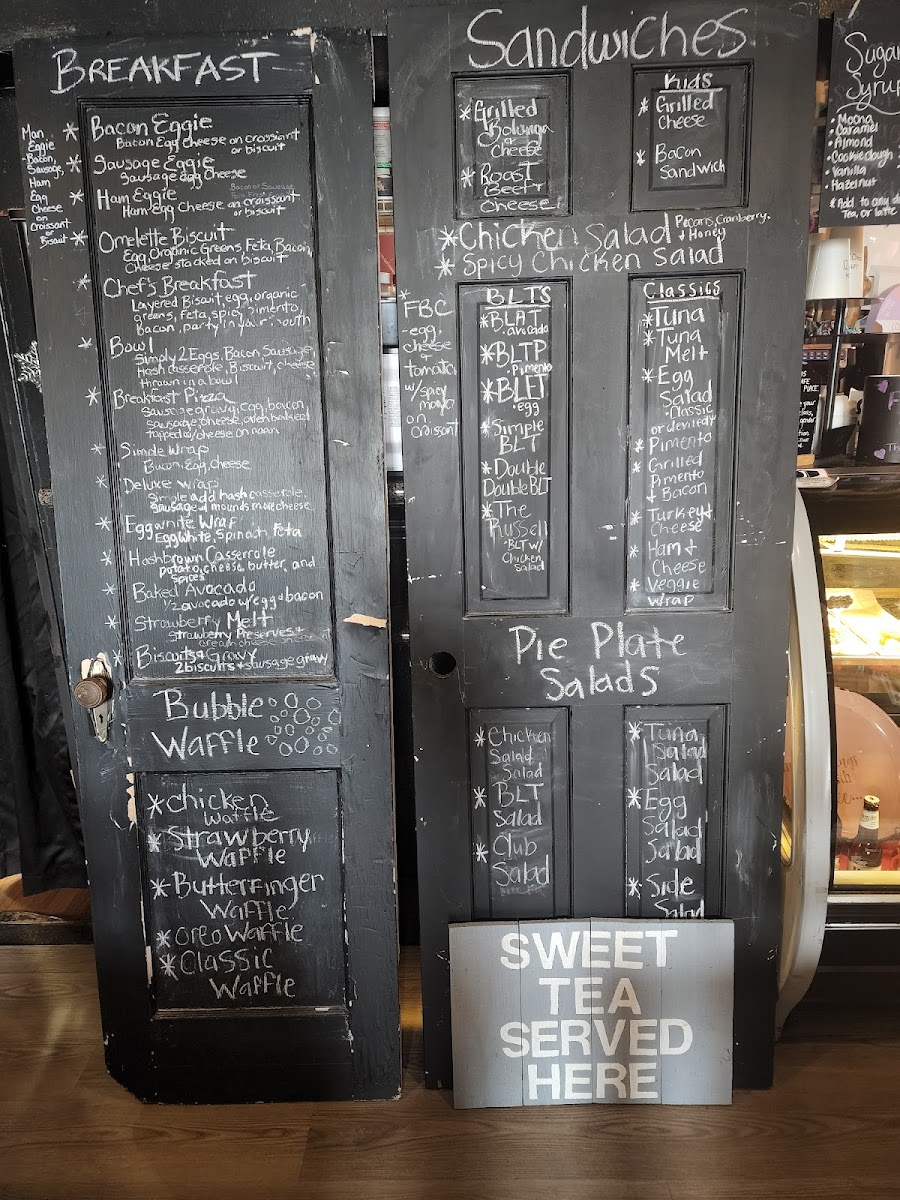 BREAKFAST
Man
Eggie
-Bacon,
Sausage,
Ham
Egg
Cheese
on
Croissant
or
Biscuit
* Bacon Eggie
Bacon Egg Cheese on crossiant
or biscuit
* Sausage Eggie
Sausage Egg Cheese
* Ham Eggie
Bacon or Sausage
Ham Egg Cheese on croissant
or biscuit
* Omelette Biscuit
Egg, Organic Greens, Feta, Bacon,
Cheese stacked on biscuit
* Chef's Breakfast
Layered Biscuit, egg, organic
greens, feta, spicy pimento,
bacon, party in your mouth
* Bowl
Simply 2 Eggs, Bacon, Sausage,
Hash casserole, Biscuit, cheese
thrown in a bowl
* Breakfast Pizza
Sausage gravy, egg, bacon,
sausage, cheese, oven baked
topped w/cheese on naan
* Simple Wrap
Bacon, Egg, Cheese
* Deluxe Wrap
Simple add hash casserole,
Sausage + mounds more cheese
* Egg white Wrap
Egg White, Spinach, Feta
* Hashbrown Casserole
potato, cheese, butter, and
spices
* Baked Avocado
1/2 avocado w/egg + bacon
* Strawberry Melt
Strawberry Preserves +
cream cheese
* Biscuits + Gravy
2 biscuits + sausage gravy
Bubble
Waffle
* Chicken
Waffle
* Strawberry
Waffle
* Butterfinger
Waffle
* Oreo Waffle
* Classic
Waffle
Sandwiches
* Grilled
Bolunga
+ Cheese
* Roast
Beef +
Cheese
KidS
* Grilled
Cheese
* Bacon
Sandwich
* Chicken Salad Pecans, Cranberry,
+ Honey
* Spicy Chicken Salad
* FBC
-egg,
cheese
+
tomato
w/spicy
mayo
on
croissant
BLTS
* BLAT
• avocado
* BLTP
• Pimento
* BLET
• egg
* Simple
BLT
* Double
Double BLT
* The
Russell
• BLT w/
Chicken
Salad
Classics
* Tuna
* Tuna
Melt
* Egg
Salad
• Classic
or deviledy
* Pimento
* Grilled
Pimento
+ Bacon
* Turkey +
Cheese
* Ham +
Cheese
* Veggie
Wrap
Pie Plate
Salads
* Chicken
Salad
Salad
* BLT
Salad
* Club
Salad
* Tuna
Salad
Salad
* Egg
Salad
Salad
* Side
Salad
SWEET
TEA
SERVED
HERE
Sugar
Syrup
• Mocha
• Caramel
• Almond
• Cookie dough
• Vanilla
• Hazelnut
* Add to any
Tea, or latte